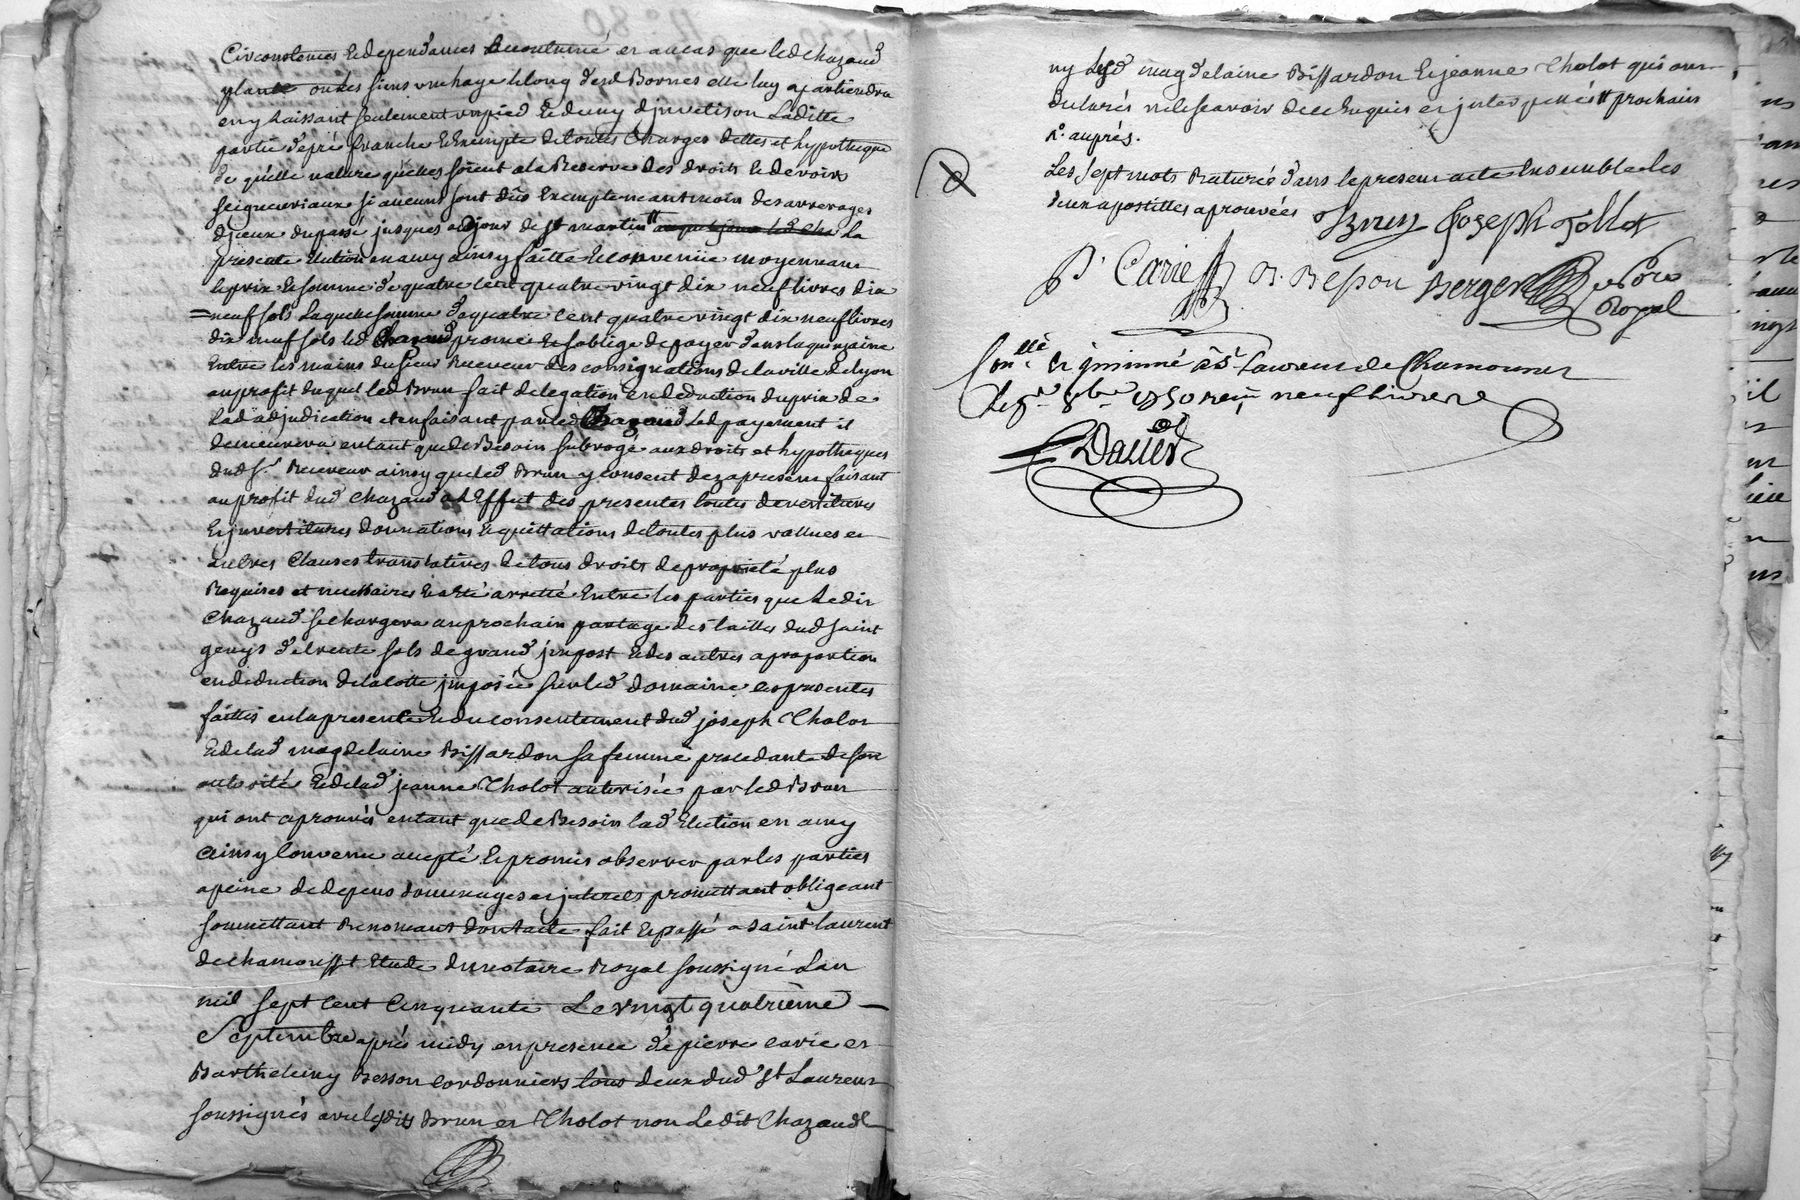 Circonstances & dependances accoutumé et au cas que led Chazaud
plante ou les siens une haye le long desd Bornes elle luy apartiendra
en y laissant seulement un pied & demy d'jnvetison Laditte
partie de pré franche & Exempte de toutes Charges dettes et hypotheque
de quelle nature quelles soient a la Reserve des droits & devoirs
seigneuriaux si aucuns sont dûs Exempte neantmoin des arrerages
d'jceux du passé jusques au jour de st martin la
presente Election en amy ainsy faitte & convenüe moyennant
le prix & somme de quatre cent quatre vingt dix neuf livres dix
neuf sols Laquelle somme de quatre cent quatre vingt dix neuf livres
dix neuf sols led Chazaud promet & s'oblige de payer dans la quinzaine
Entre les mains du sieur Receveur des consignations de la ville de Lyon
au profit duquel led Brun fait delegation en deduction du prix de
lad adjudication et en faisant par led Chazaud led payement il
demeurera entant que de Besoin subrogé aux droits et hypotheques
dud sr Receveur ainsy que led Brun y consent dez apresent faisant
au profit dud Chazaud a l'Effet des presentes toutes devestitures
& jnvestitures donnations & quittations de toutes plus vallues et
autres Clauses translatives de tous droits de proprieté plus
Requises et necessaires & a eté arretté Entre les parties que Ledit
Chazaud se chargera au prochain partage des tailles dud saint
genys de trente sols de grand jmpost & des autres a proportion
en deduction de la cotte jmposée sur led domaine les presentes
faittes en la presence & du consentement dud joseph Tholot
& de lad magdelaine Bissardon sa femme procedante de son
autorité & de lad jeanne Tholot autorisée par led Brun
qui ont aprouvés entant que de Besoin lad Election en amy
ainsy Convenu accepté & promis observer par les parties
a peine de depens dommages et jnterets promettant obligeant
soumettant Renonçant dont acte fait & passé a saint Laurent
de chamousset Etude du notaire Royal soussigné L'an
mil sept cent Cinquante Le vingt quatrième
Septembre après midy en presence de pierre carie et
Barthelemy Besson cordonniers tous deux dud st Laurent
soussignés avec lesdits Brun et Tholot non Ledit Chazaud
ny Lesd magdelaine Bissardon & jeanne Tholot qui ont
declarés ne le scavoir de ce Enquis et jnterpellés prochain
R. auprés.
Les sept mots Raturés dans le present acte Ensemble les
deux apostilles aprouvées Brun Joseph Tollot
P. Carie B. Besson Berger no.re
Royal
Con.llé et jnsinué à St Laurent de Chamousset
Le 8bre 1750 reçu neuf livres
Dalier